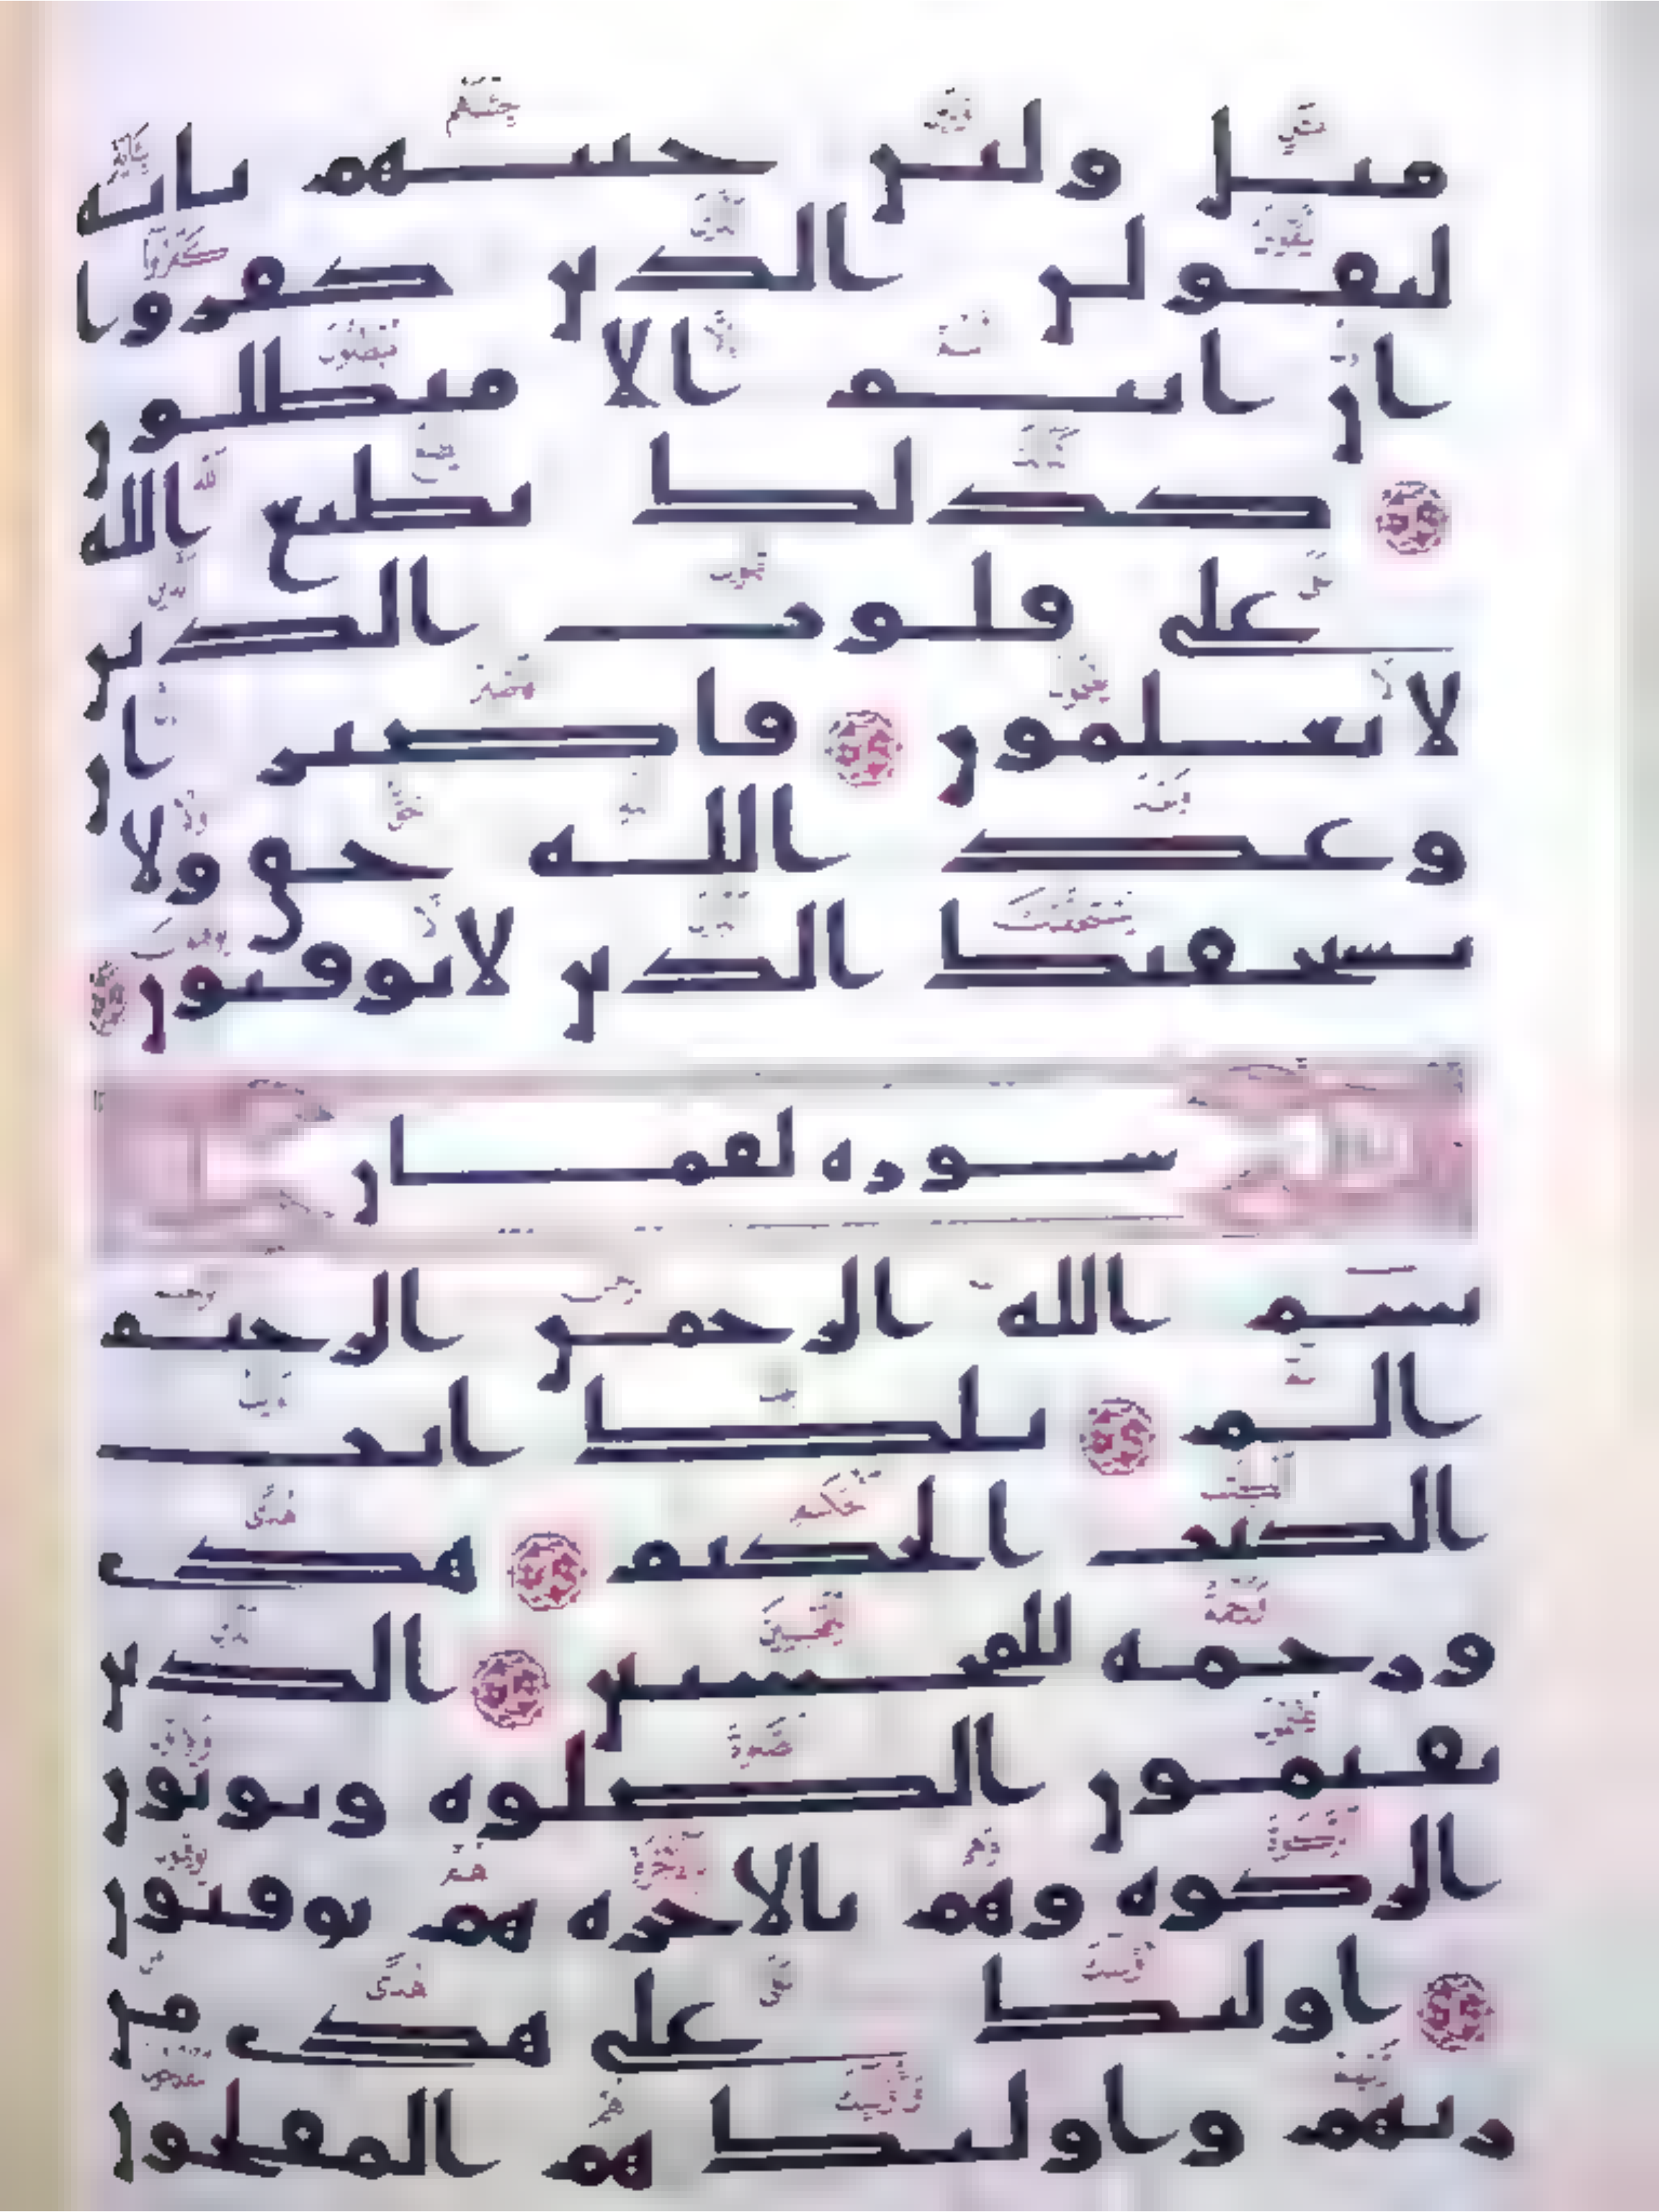 مثل ولئن جئتهم بايه
ليقولن الذين كفروا
ان انتم الا مبطلون
كذلك يطبع الله
على قلوب الذين
لا يعلمون فاصبر ان
وعد الله حق ولا
يستخفنك الذين لا يوقنون
سوره لقمان
بسم الله الرحمن الرحيم
الم تلك ايت
الكتب الحكيم هدى
ورحمه للمحسنين الذين
يقيمون الصلوه ويوتون
الزكوه وهم بالاخره هم يوقنون
اوليك على هدى من
ربهم واوليك هم المفلحون